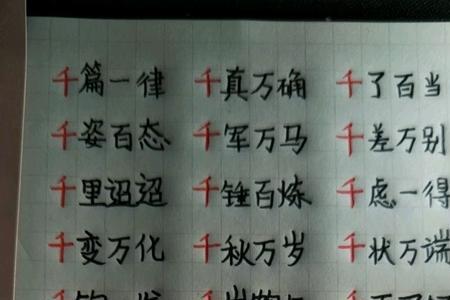 千篇一律 千真万确 千了百当
千姿百态 千军万马 千差万别
千里迢迢 千锤百炼 千虑一得
千变万化 千秋万岁 千状万端